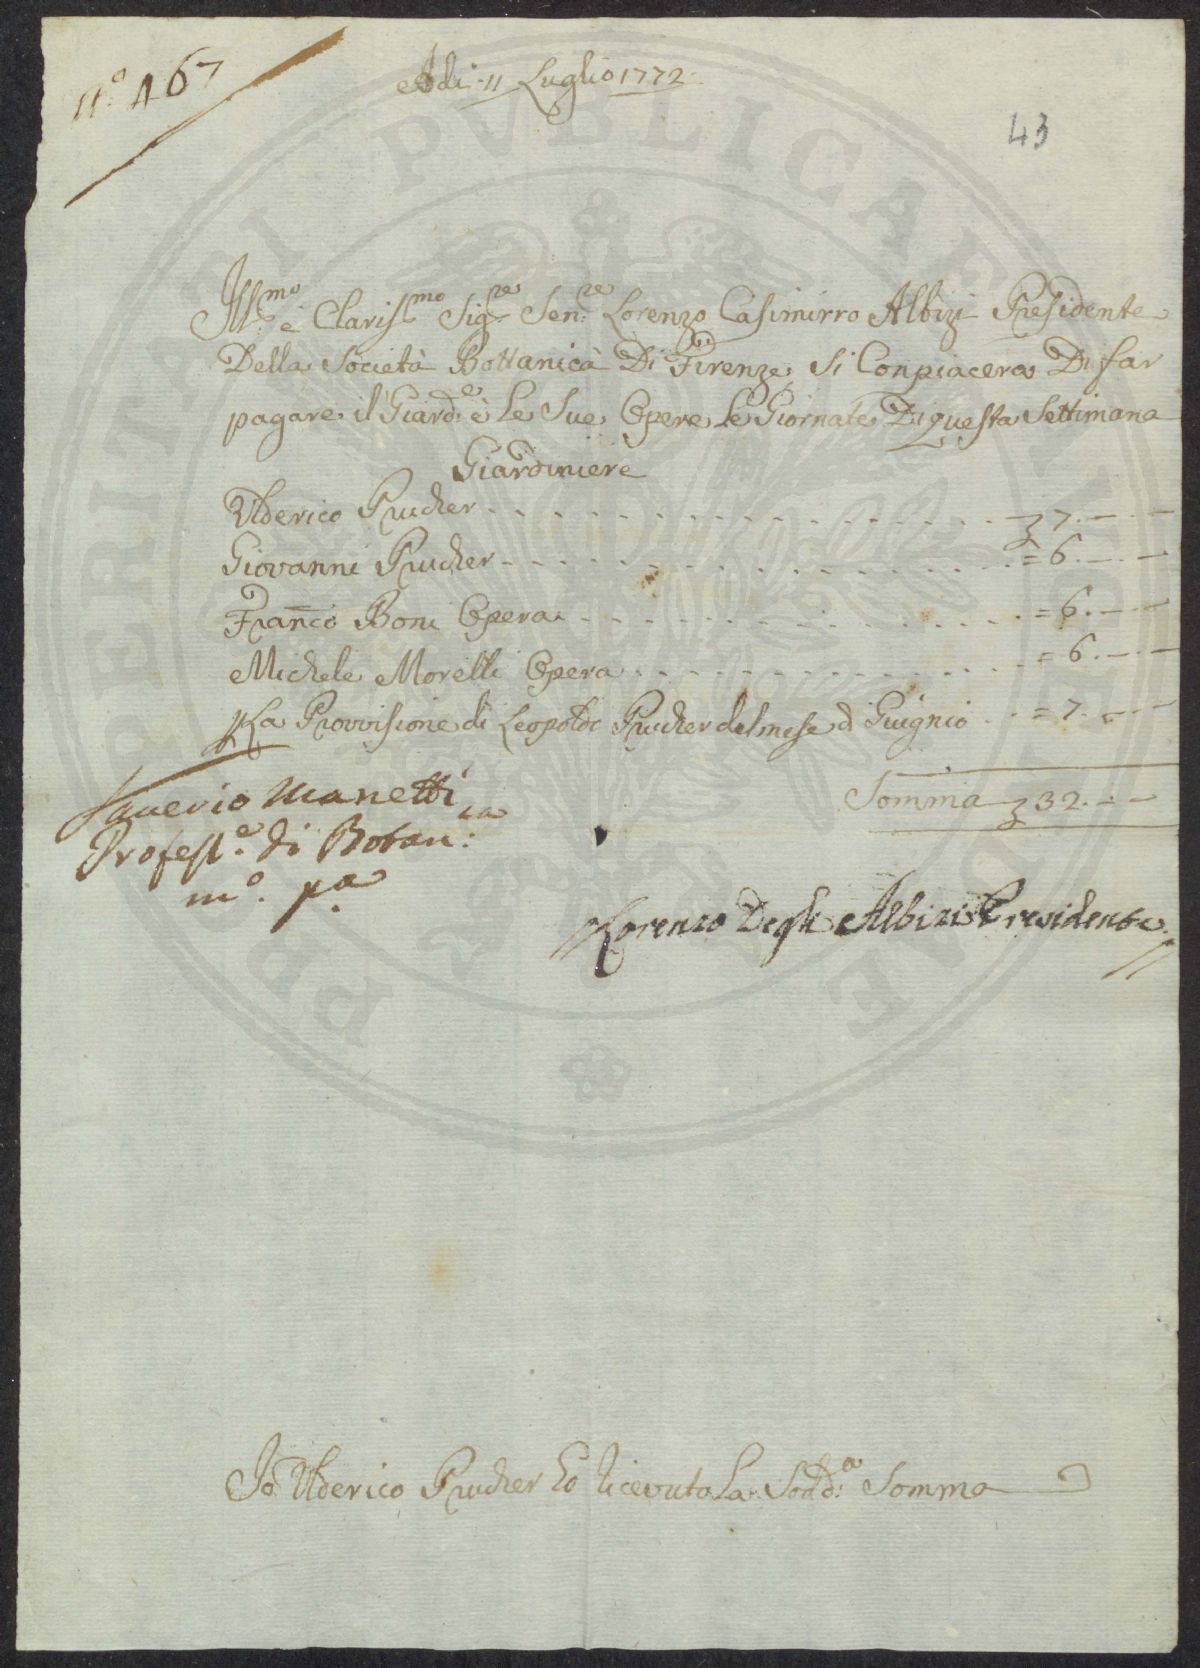 n.° 467
Adi 11 Luglio 1772
43
Ill:mo e Clariss:mo Sig:re Sen:re Lorenzo Casimirro Albizi Presidente
Della Società Bottanica Di Firenze Si Conpiacera Di far
pagare il Giard:e è le Sue Opere le Giornate Di questa Settimana
Giardiniere
Ulderico Prucher 7.—.—
Giovanni Prucher = 6.—.—
Fran:co Boni Opera = 6.—.—
Michele Morelli Opera = 6.—.—
La Provvisione di Leopoldo Prucher del mese d Guignio = 7.—
Somma 32.—.—
Saverio Manetti
Profess:e di Botan:ca
m:o p:a
Lorenzo Degli Albizi Presidente
Io Ulderico Prucher ho ricevuto la Sodd:a Somma
PROSPERITATI PVBLICAE AVGENDAE